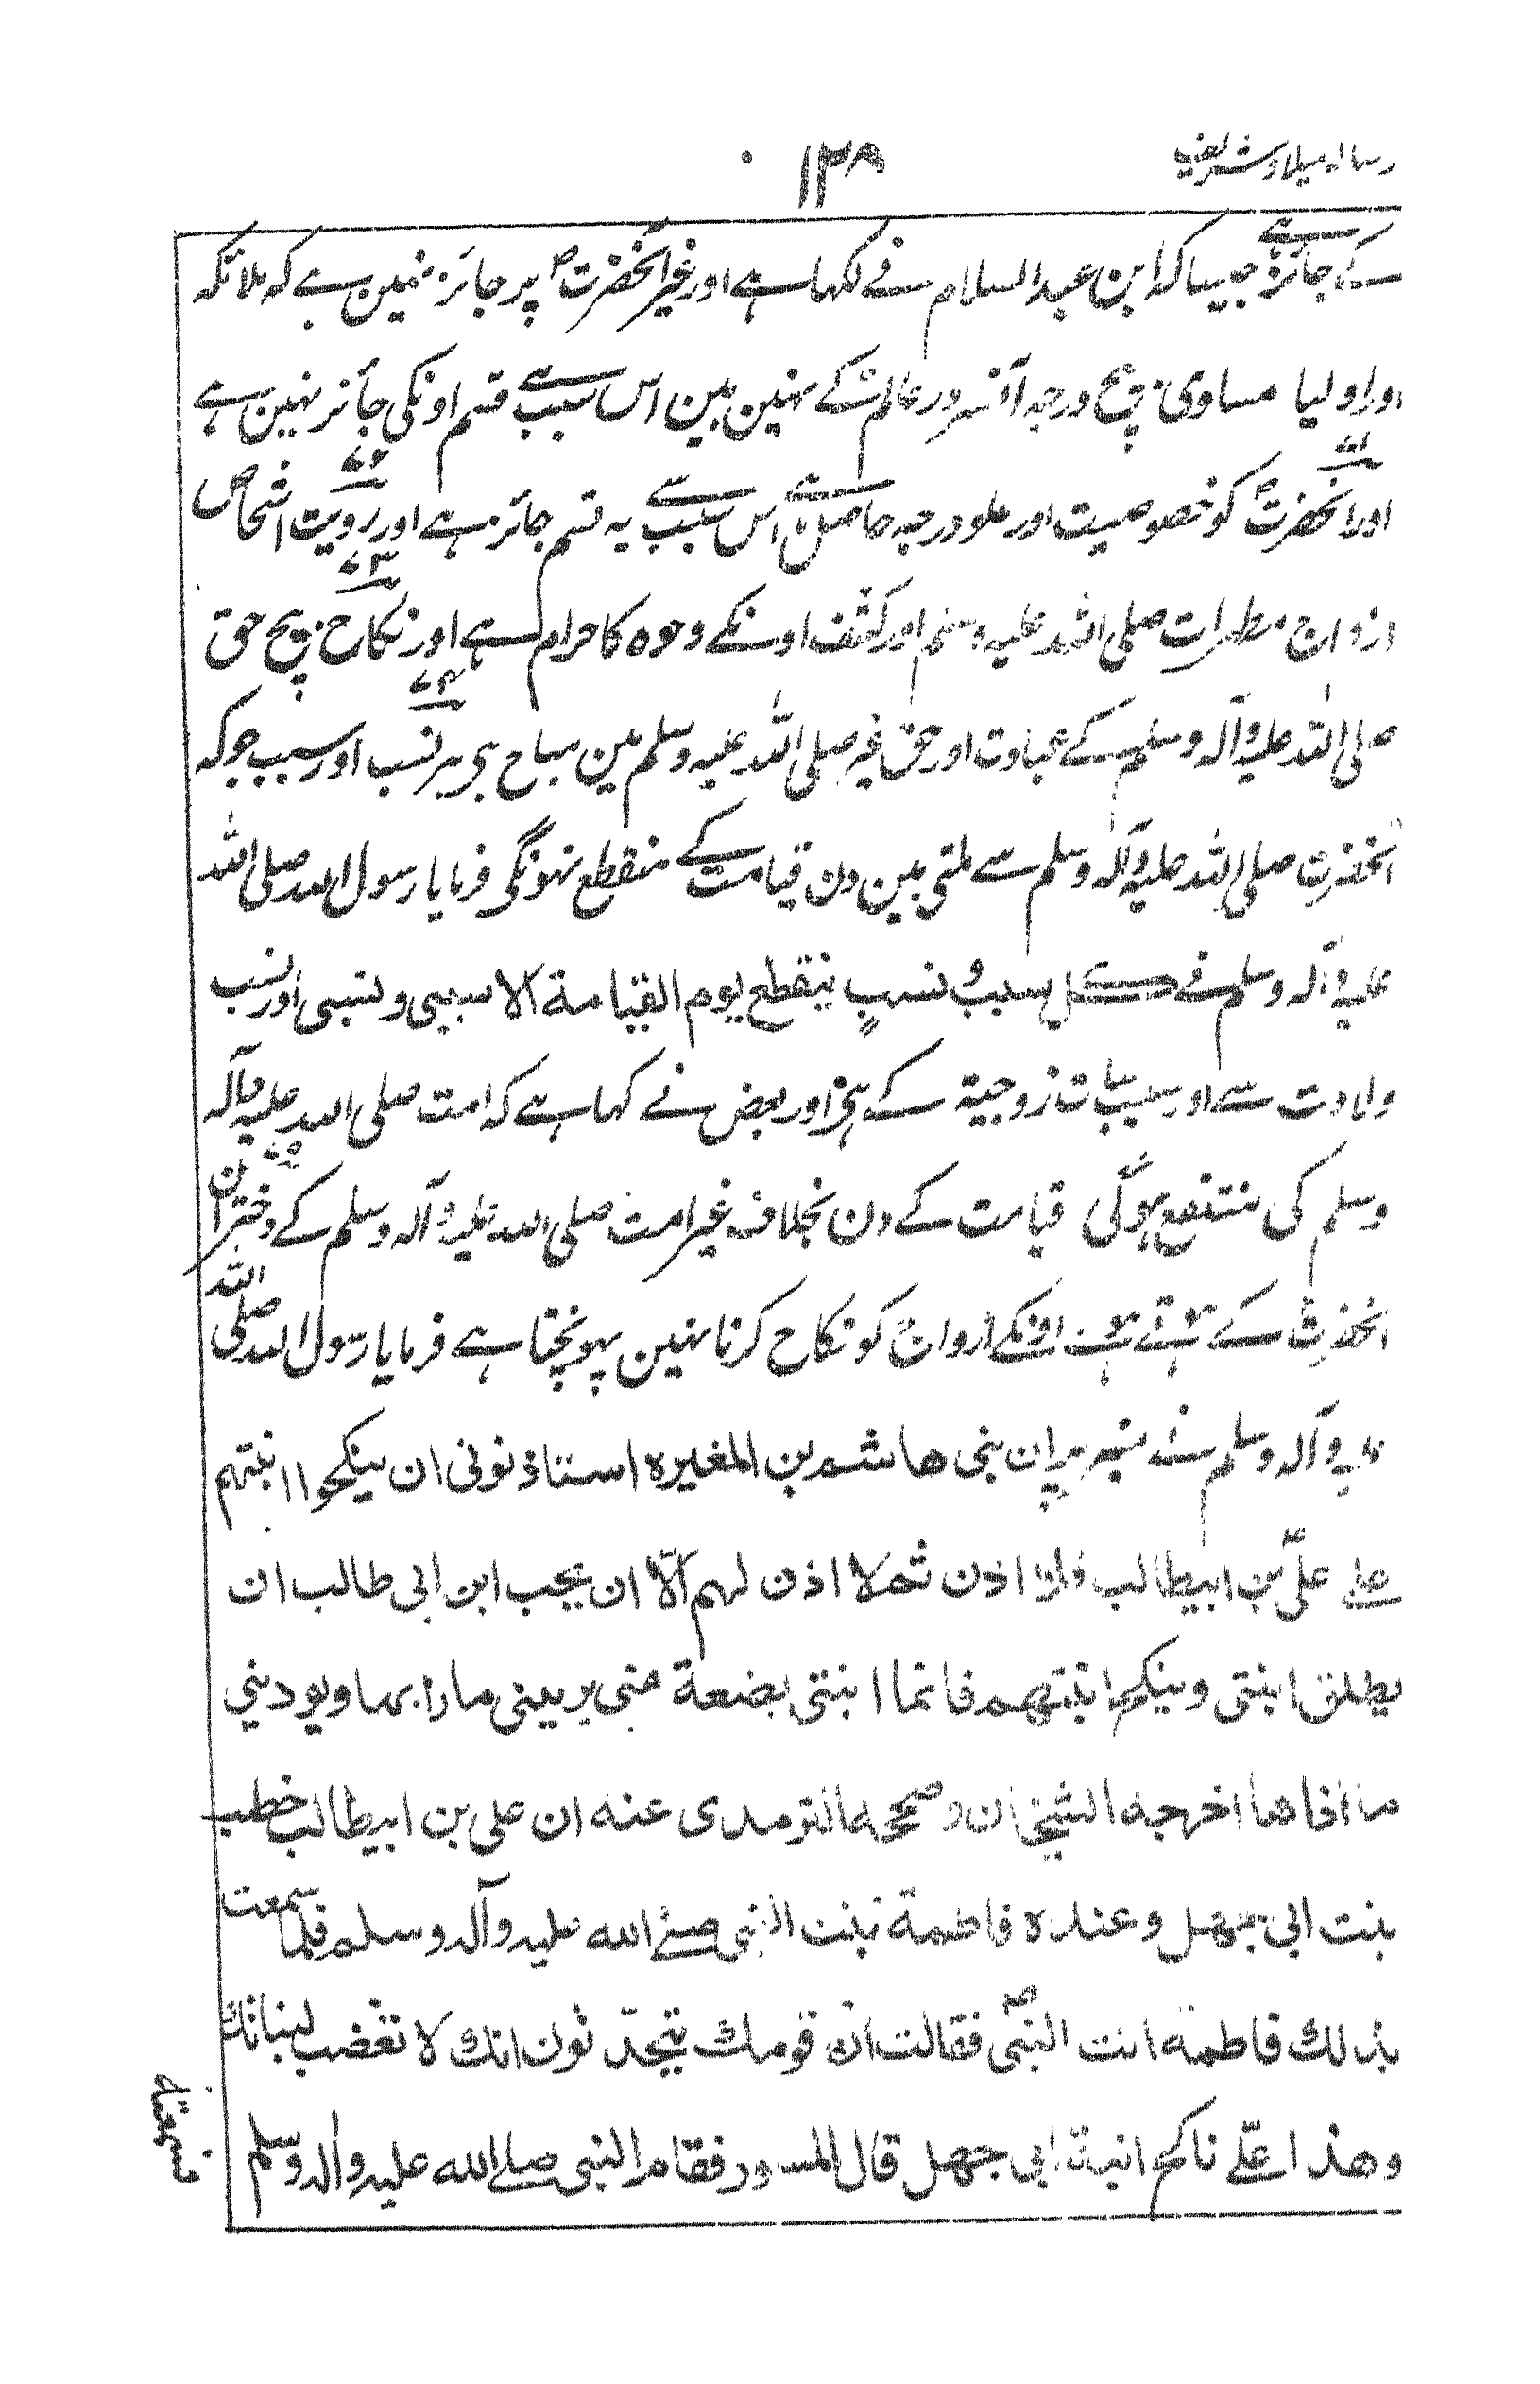 رسالہ میلاد شریف
۱۲۸
کے جائز ہے جیسا کہ ابن عبد السلام نے لکہا ہے اور غیر آنحضرت ؐ پر جائز نہین ہے کہ ملائکہ
اور اولیا مساوی بیچ درجہ آن سرور عالم کے نہین ہین اس سبب سے قسم اونکی جائز نہین ہے
اور آنحضرت کو خصوصیت اور علو درجہ حاصل ہے اس سبب سے یہ قسم جائز ہے اور رویت اشخاص
ازواج مطہرات صلی اللہ علیہ وسلم اور کشف اونکے وجوہ کا حرام ہے اور نکاح بیچ حق
صلی اللہ علیہ وآلہ وسلم کے عبادت اور حق غیر صلی اللہ علیہ وسلم مین مباح ہی ہر نسب اور سبب جو کہ
آنحضرت صلی اللہ علیہ وآلہ وسلم سے ملتی ہین دن قیامت کے منقطع نہونگی فرمایا رسول اللہ صلی اللہ
علیہ وآلہ وسلم نے کل سبب و نسب ینقطع یوم القیامة الا سببی و نسبی اور نسب
ولادت سے اور سبب زوجیة کے ہے اور بعض نے کہا ہے کہ امت صلی اللہ علیہ وآلہ
وسلم کی منتفع ہوگی قیامت کے دن بخلاف غیر امت صلی اللہ علیہ وآلہ وسلم کے دختران
آنحضرت کے ہوتے ہوئے اونکے ازواج کو نکاح کرنا نہین پہونچتا ہے فرمایا رسول اللہ صلی اللہ
علیہ وآلہ وسلم نے منبر پر ان بنی ہاشم بن المغیرہ استاذنونی ان ینکحوا ابنتہم
علے علی بن ابیطالب فلا اذن ثم لا اذن لہم الّا ان یحب ابن ابی طالب ان
یطلق ابنتی وینکح ابنتہم فانما ابنتی بضعة منی یریبنی ما رابہا ویوذینی
ما اذاہا اخرجہ الشیخان وصححہ الترمذی عنہ ان علی بن ابیطالب خطب
بنت ابی جہل وعندہ فاطمة بنت النبی صلے اللہ علیہ وآلہ وسلم فلما سمعت
بذلك فاطمة اتت النبی فقالت ان قومك یتحدّثون انك لا تغضب لبناتك
وھذا علی ناکح ابنة ابی جھل قال المسور فقام النبی صلے اللہ علیہ والہ وسلم